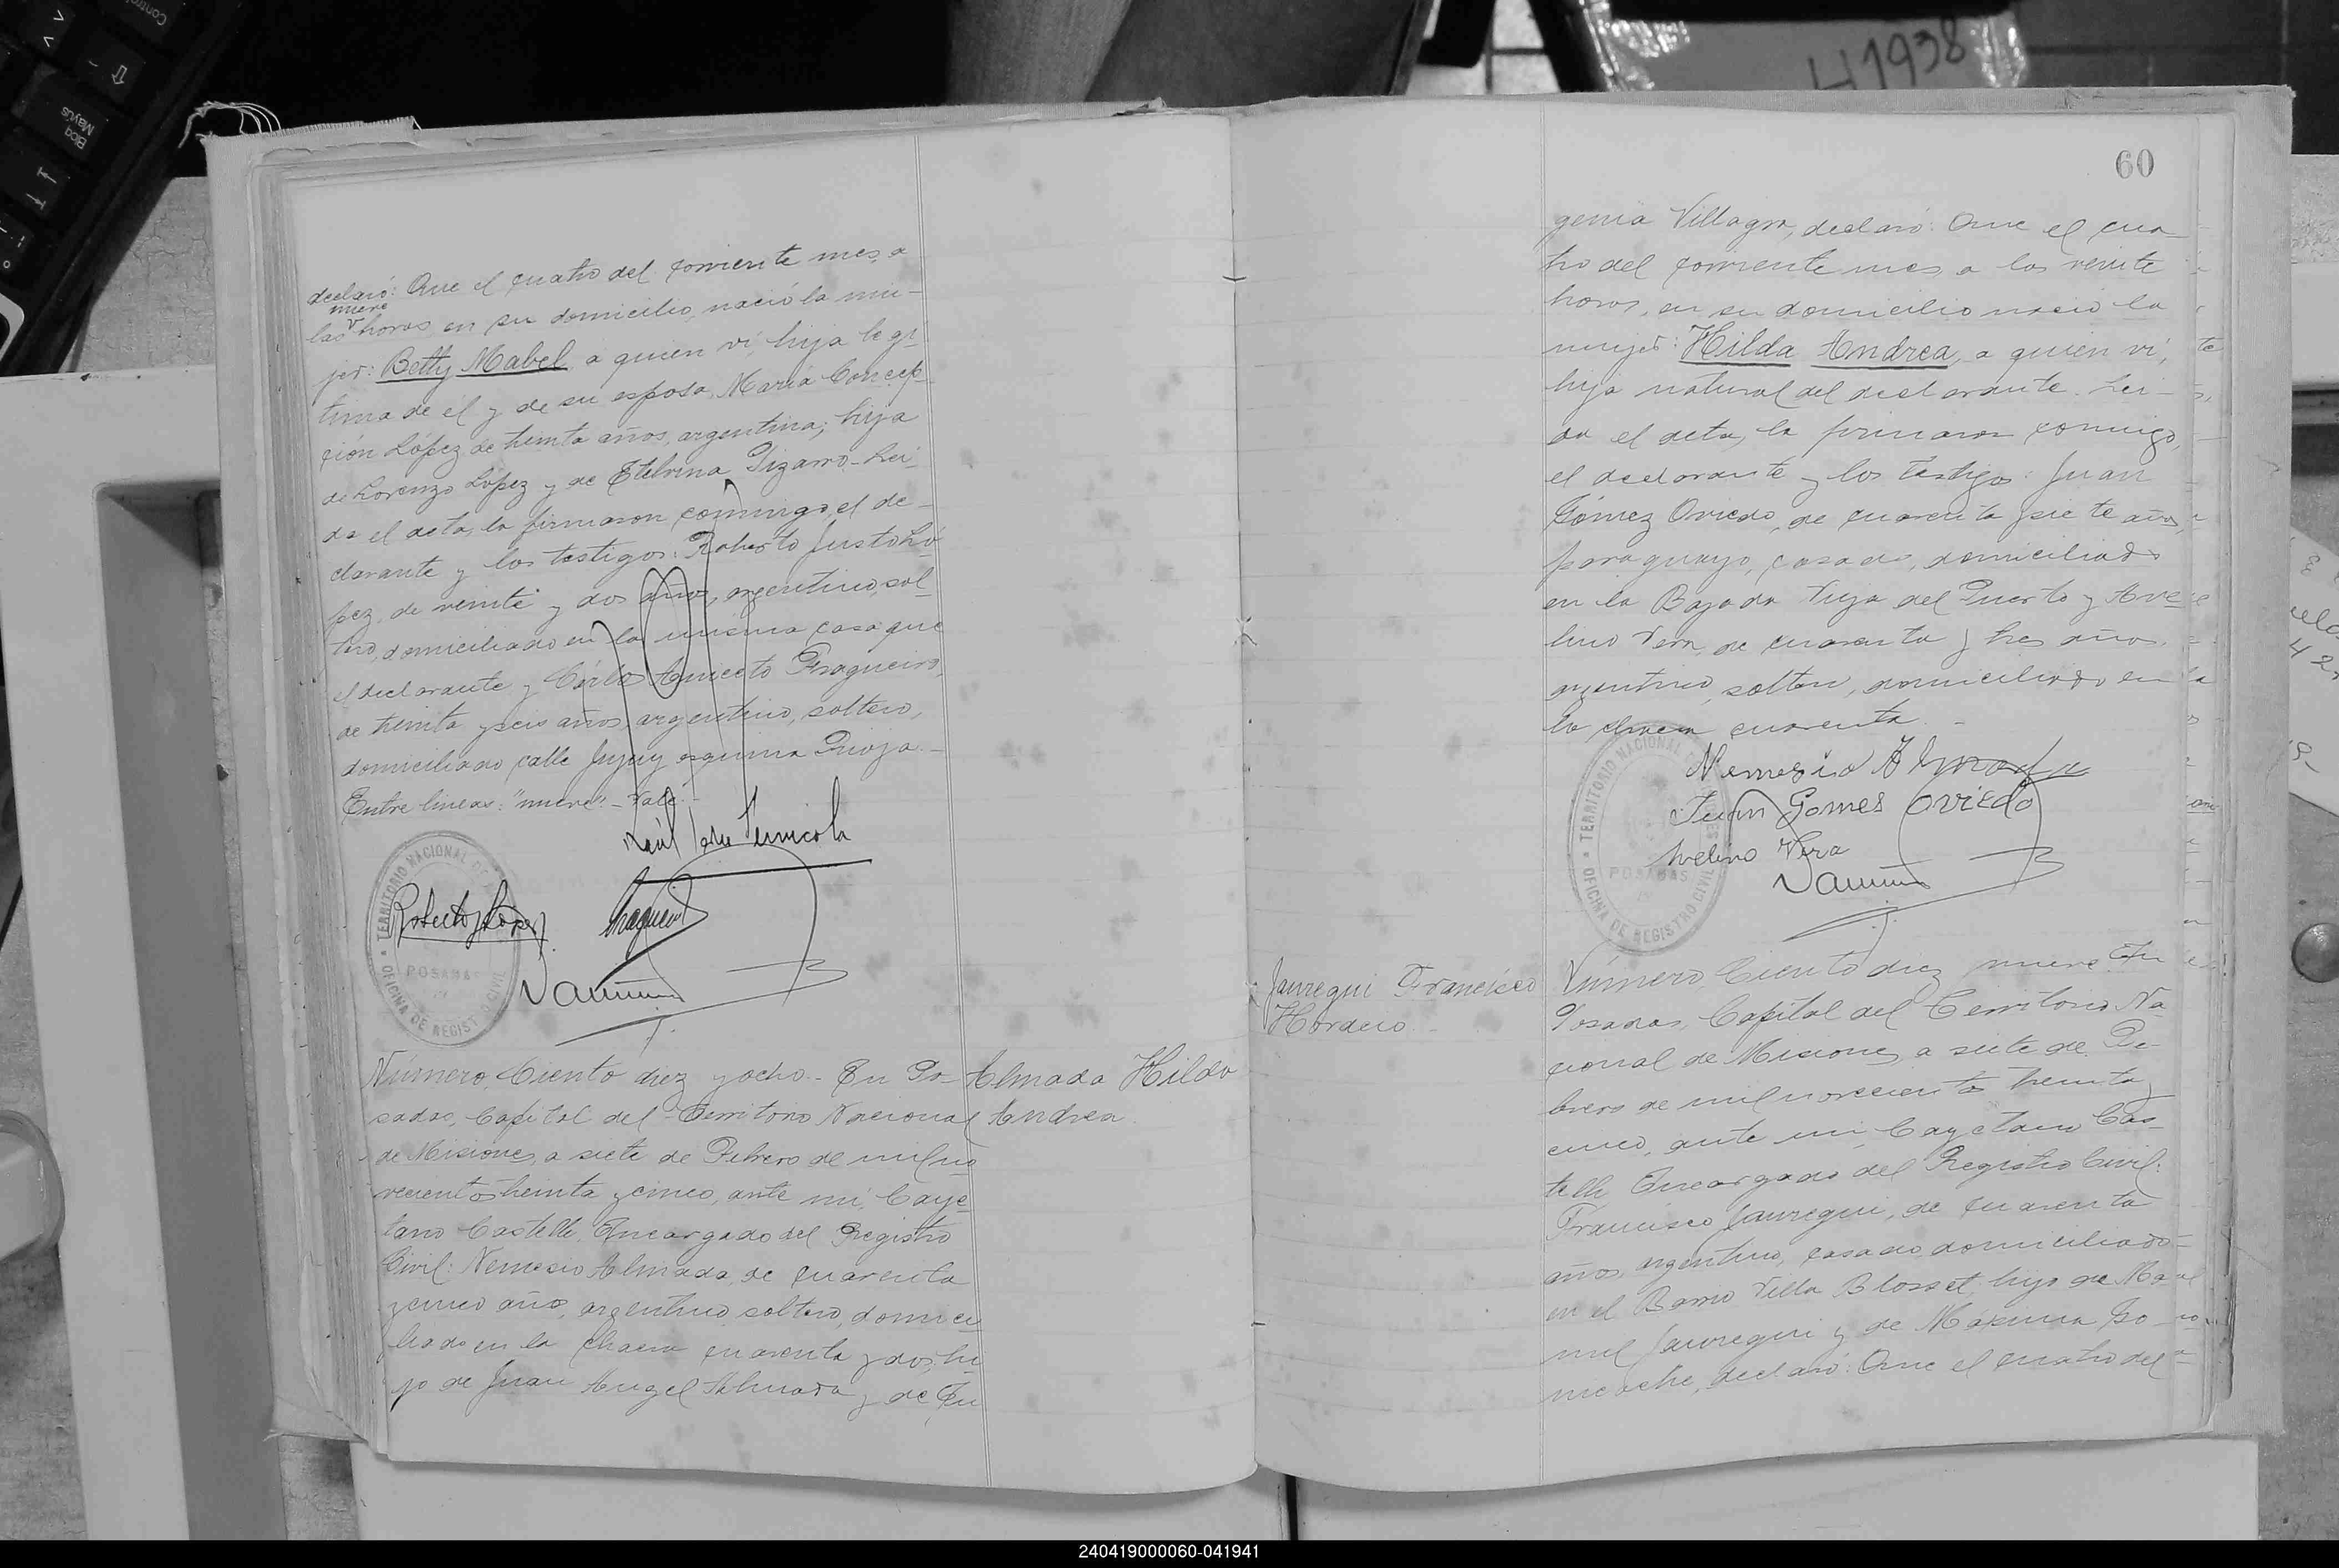 declaró: Que el cuatro del corriente mes, a
nueve
las horas, en su domicilio, nació la mu-
jer: Betty Mabel, a quien ví, hija legí-
tima de él y de su esposa, María Concep-
ción López, de treinta años, argentina; hija
de Lorenzo López y de Etelvina Pizarro.- Leí-
da el acta, la firmaron conmigo, el de-
clarante y los testigos: Roberto Justo Ló-
pez, de veinte y dos años, argentino, sol-
tero, domiciliado en la misma casa que
el declarante y Aniceto Fragueiro,
de treinta y seis años, argentino, soltero,
domiciliado calle Jujuy esquina Rioja.-
Entre líneas: "nueve":- Vale.-
Raúl
Roberto J López
TERRITORIO NACIONAL DE
POSADAS
OFICINA DE REGISTRO CIVIL
Número Ciento diez y ocho.- En Po-
sadas, Capital del Territorio Nacional
de Misiones, a siete de Febrero de mil no-
vecientos treinta y cinco, ante mí, Caye-
tano Castelli, Encargado del Registro
Civil: Nemesio Almada, de cuarenta
y cinco años, argentino, soltero, domici-
liado en la chacra cuarenta y dos, hi-
jo de Juan Angel Almada y de Eu-
Almada Hilda
Andrea
60
genia Villagra, declaró: Que el cua-
tro del corriente mes, a las veinte
horas, en su domicilio nació la
mujer: Hilda Andrea, a quien ví,
hija natural del declarante. Leí-
da el acta, la firmaron conmigo,
el declarante y los testigos: Juan
Gómez Oviedo, de cuarenta y siete años,
paraguayo, casado, domiciliado
en la Bajada Vieja del Puerto y Ave-
lino Vera, de cuarenta y tres años,
argentino, soltero, domiciliado en
la chacra cuarenta.-
Nemesio Almada
Juan Gomes Oviedo
Avelino Vera
TERRITORIO NACIONAL DE MISIONES
POSADAS
OFICINA DE REGISTRO CIVIL
Jauregui Francisco
Número Ciento diez y nueve. En
Posadas, Capital del Territorio Na-
cional de Misiones, a siete de Fe-
brero de mil novecientos treinta y
cinco, ante mí, Cayetano Cas-
telli, Encargado del Registro Civil:
Francisco Jauregui, de cuarenta
años, argentino, casado, domiciliado
en el Barrio Villa Blosset, hijo de Ma-
nuel Jauregui y de Máxima
declaró: Que el cuatro del
H1938
Bloq
Mayús
Control
240419000060-041941